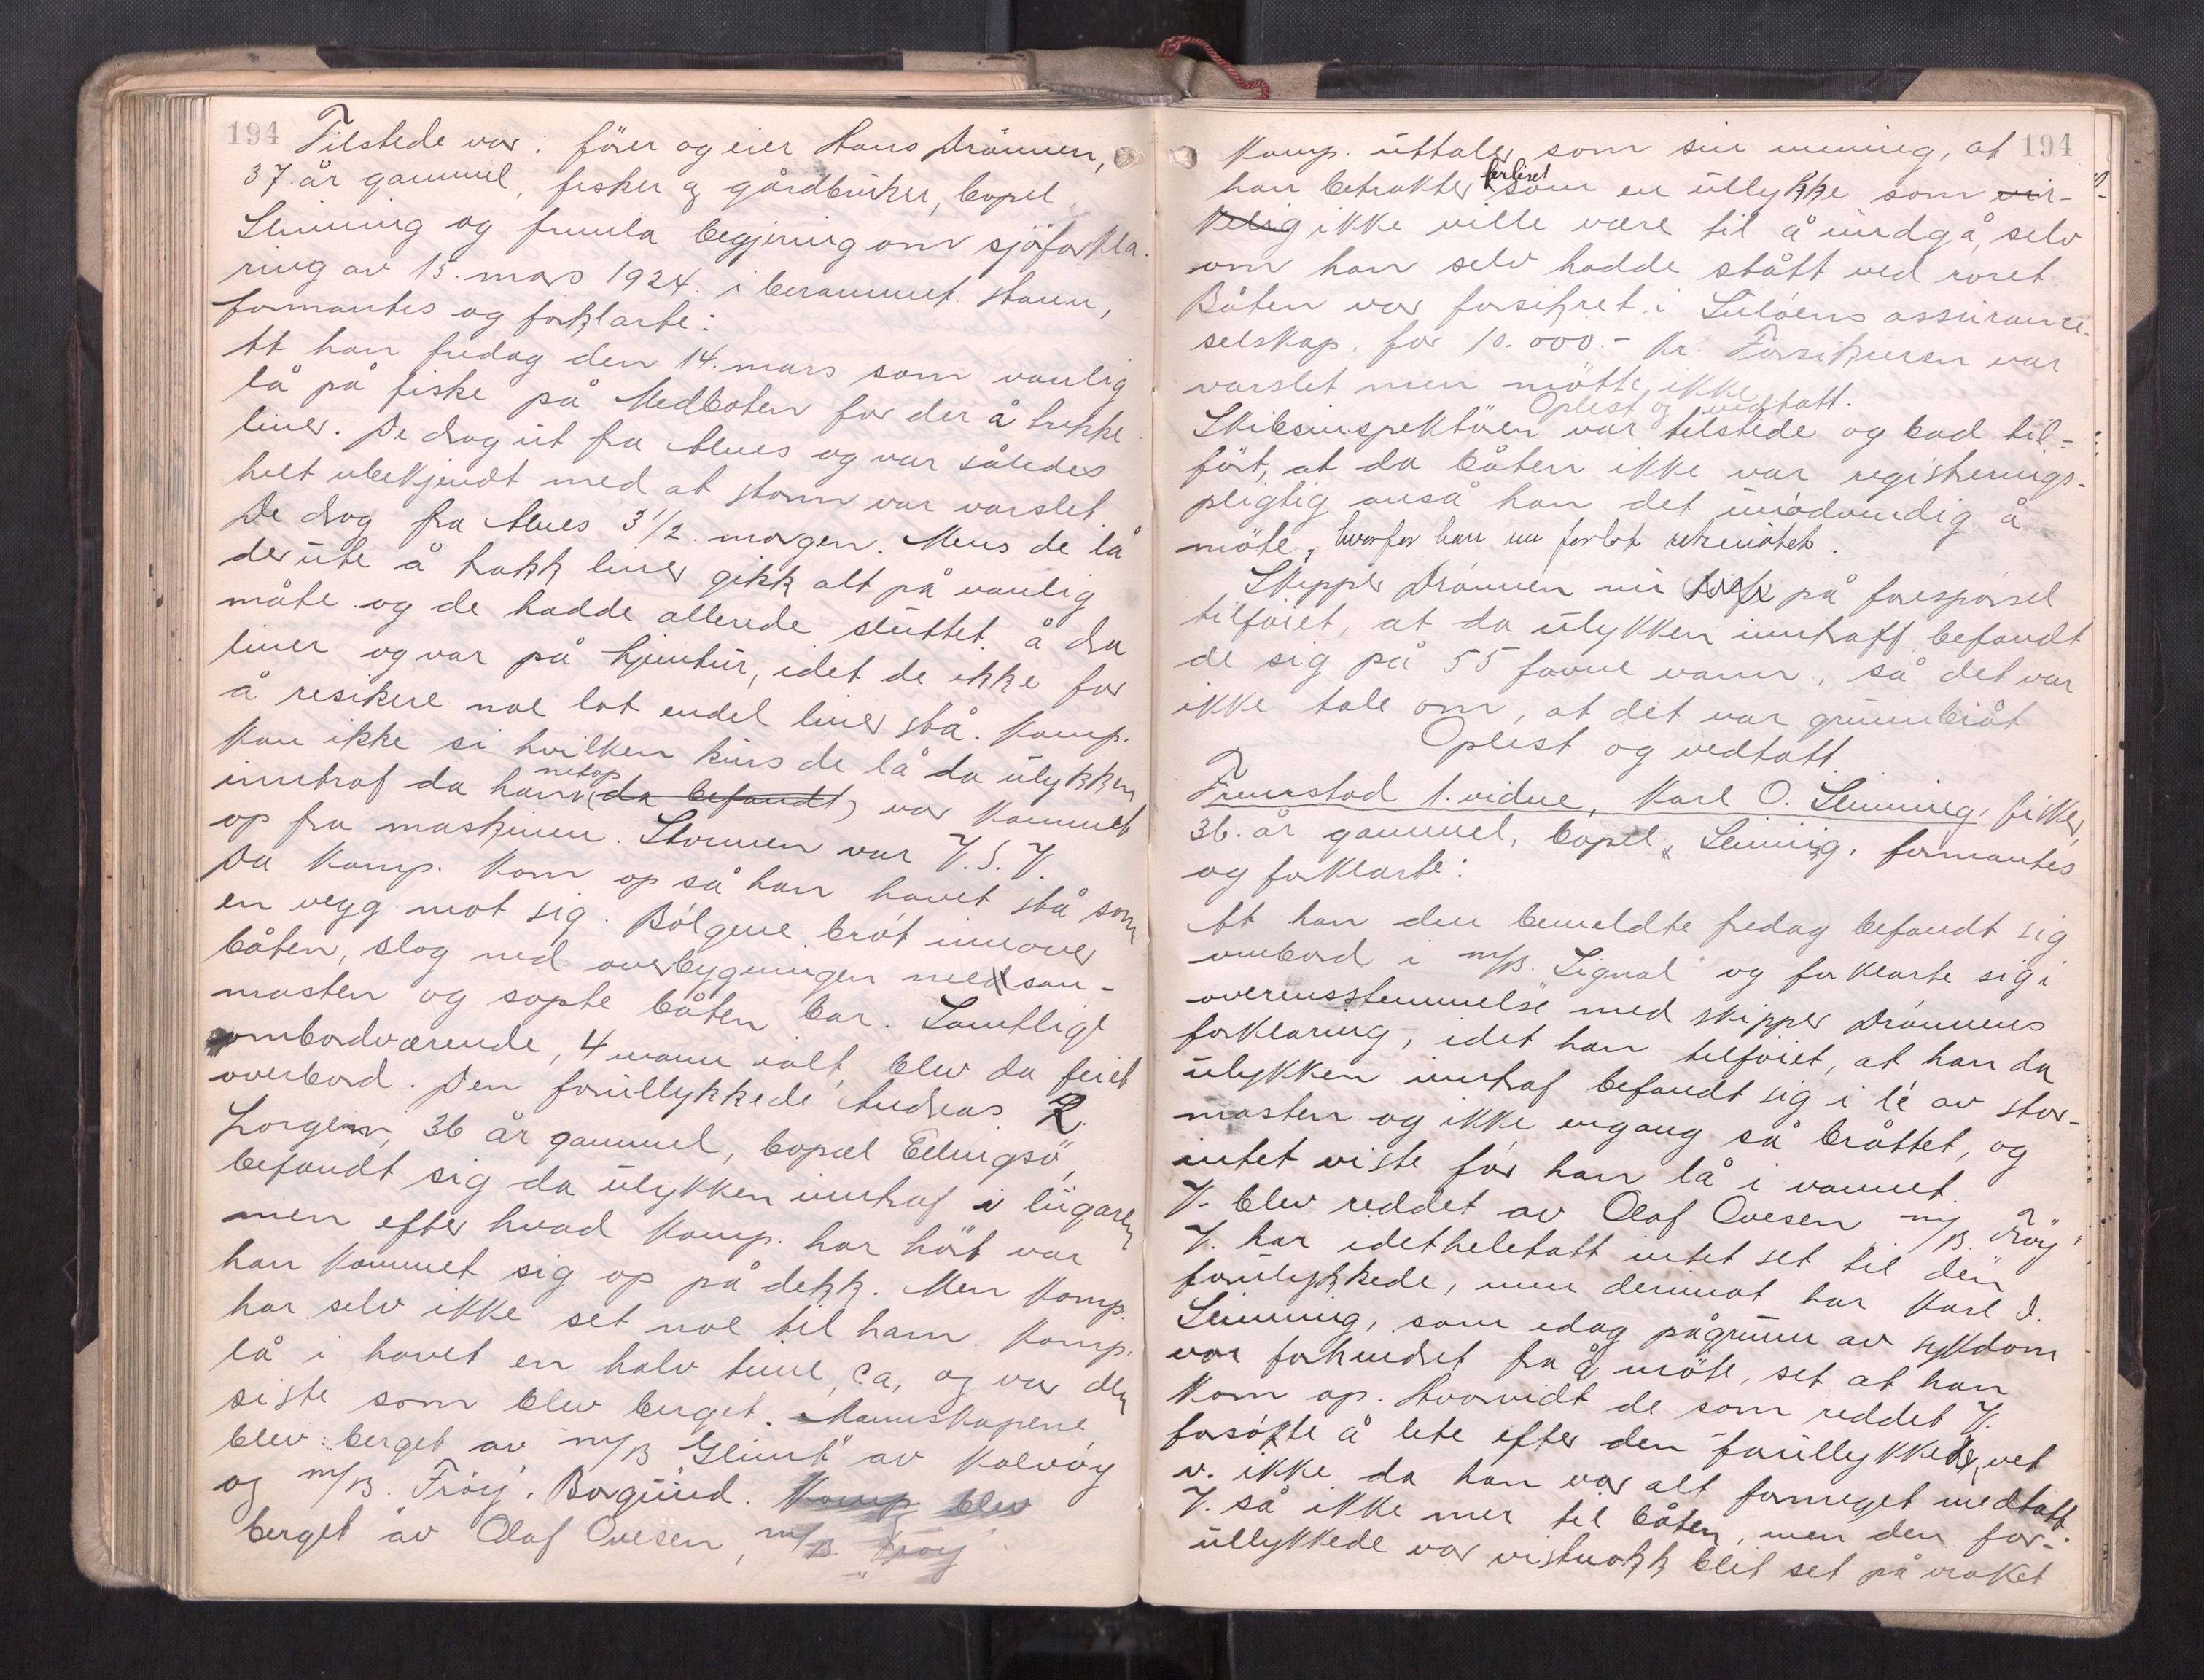 194
Tilstede var: fører og eier Hans Drønnen,
37 år gammel, fisker og gårdbruker, bopel
Leinning og frmla begjering om sjøforkla-
ring av 15. mars 1924. i berammet. Hann,
formantes og forklarte:
At han fredag den 14. mars som vanlig
lå på fiske på Medboten for der å trekke
liner. De drog ut fra Alnes og var således
helt ubekjendt med at storm var varslet.
De drog fra Alnes 3 1/2 morgen. Mens de lå
derute å trakk liner gikk alt på vanlig
måte og de hadde allerede sluttet å dra
liner og var på hjemtur, idet de ikke for
å resikere noe lot endel liner stå. Komp.
kan ikke si hvilken kurs de lå da ulykken
inntraf da han netop (da befandt) var kommet
op fra maskinen. Stormen var V.S.V.
Da komp. kom op så han havet stå som
en vegg mot sig. Bølgene brøt innover
båten, slog ned overbygningen med san-
masten og sopte båten bar. Samtlige
ombordværende, 4 mann ialt, blev da feiet
overbord. Den forullykkede Andreas L.
Longem, 36 år gammel, bopæl Ellingsø,
befandt sig da ulykken inntraf i lugaren
men efter hvad komp. har hørt var
han kommet sig op på dekk. Men komp.
har selv ikke set noe til ham. Komp.
lå i havet en halv time, ca, og var den
siste som blev berget. Mannskapene
blev berget av m/B "Glimt" av Kalvøy
og m/B. Frøy, Borgund. Komp blev
berget av Olaf Ovesen, m/B. "Frøy"
194
Komp. uttaler som sin mening, at
han betrakter forliset som en ullykke som vir-
kelig ikke ville være til å undgå, selv
om han selv hadde stått ved roret.
Båten var forsikret i Suløens assurance-
selskap. for 10.000.- kr. Forsikreren var
varslet men møtte ikke.
Oplest og vedtatt.
Skibsinspektøren var tilstede og bad til-
ført, at da båten ikke var registrerings-
pligtig anså han det unødvendig å
møte, hvorfor han nu forlot retsmøtet.
Skipper Drønnen nu på forespørsel
tilføiet, at da ulykken inntraff befandt
de sig på 55 favne vann, så det var
ikke tale om, at det var grunnbrått
Oplest og vedtatt.
Fremstod 1. vidne, Karl O. Leinning, fisker,
36 år gammel, bopel Leinning, formantes
og forklarte:
At han den bemeldte fredag befandt sig
ombord i m/B. "Signal" og forklarte sig i
overensstemmelse med skipper Drønnens
forklaring, idet han tilføiet, at han da
ulykken inntraf befandt sig i lé av stor-
masten og ikke engang så bråttet, og
intet viste før han lå i vannet.
V. blev reddet av Olaf Ovesen m/B. "Frøy"
V. har idetheletatt intet set til den
forulykkede, men derimot har Karl I.
Leinning, som idag pågrunn av sykdom
var forhindret fra å møte, set at han
kom op. Hvorvidt de som reddet V.
forsøkte å lete efter den forullykkede, vet
v. ikke da han var alt formeget medtatt.
V. så ikke mer til båten, men den for-
ullykkede var vistnokk blit set på vraket